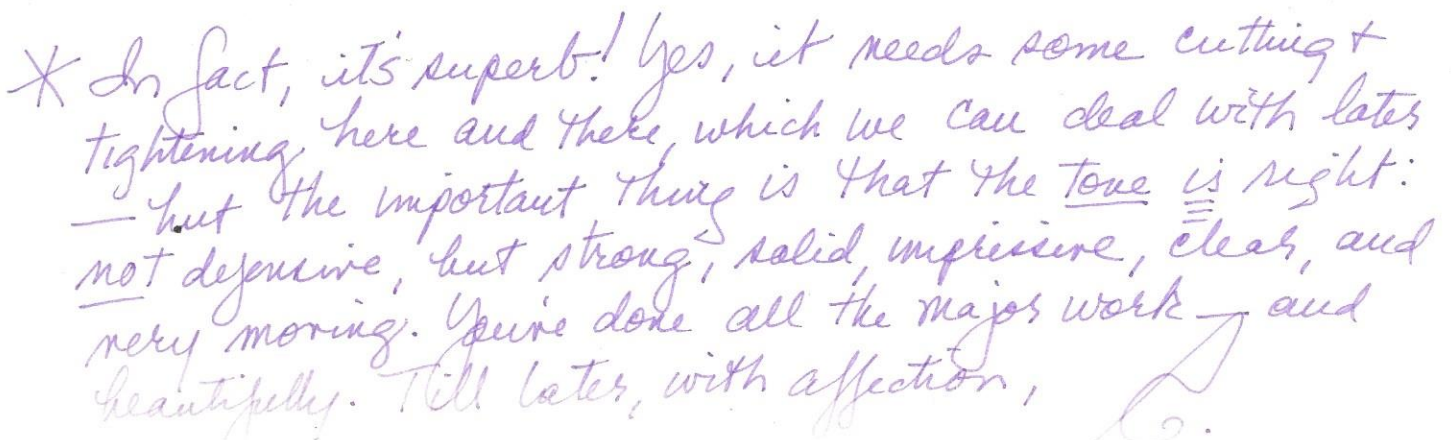 * In fact, it's superb! Yes, it needs some cutting +
tightening here and there, which we can deal with later
— but the important thing is that the tone is right:
not defensive, but strong, solid, impressive, clear, and
very moving. You've done all the major work — and
beautifully. Till later, with affection,